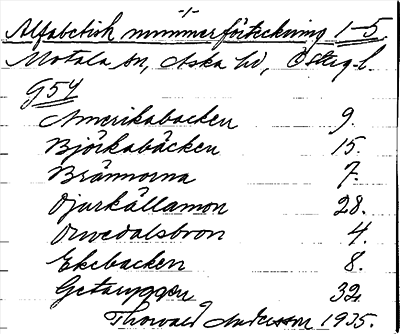 -1-
Alfabetisk nummerförteckning 1-5.
Motala sn, Aska hd, Österg-l.
G 54
Amerikabacken 9.
Björkabäcken 15.
Brännorna 7.
Djurkällamon 28.
Drvedalsbron 4.
Ekebacken 8.
Getaryggen 32.
Thorvald Andersson 1935.